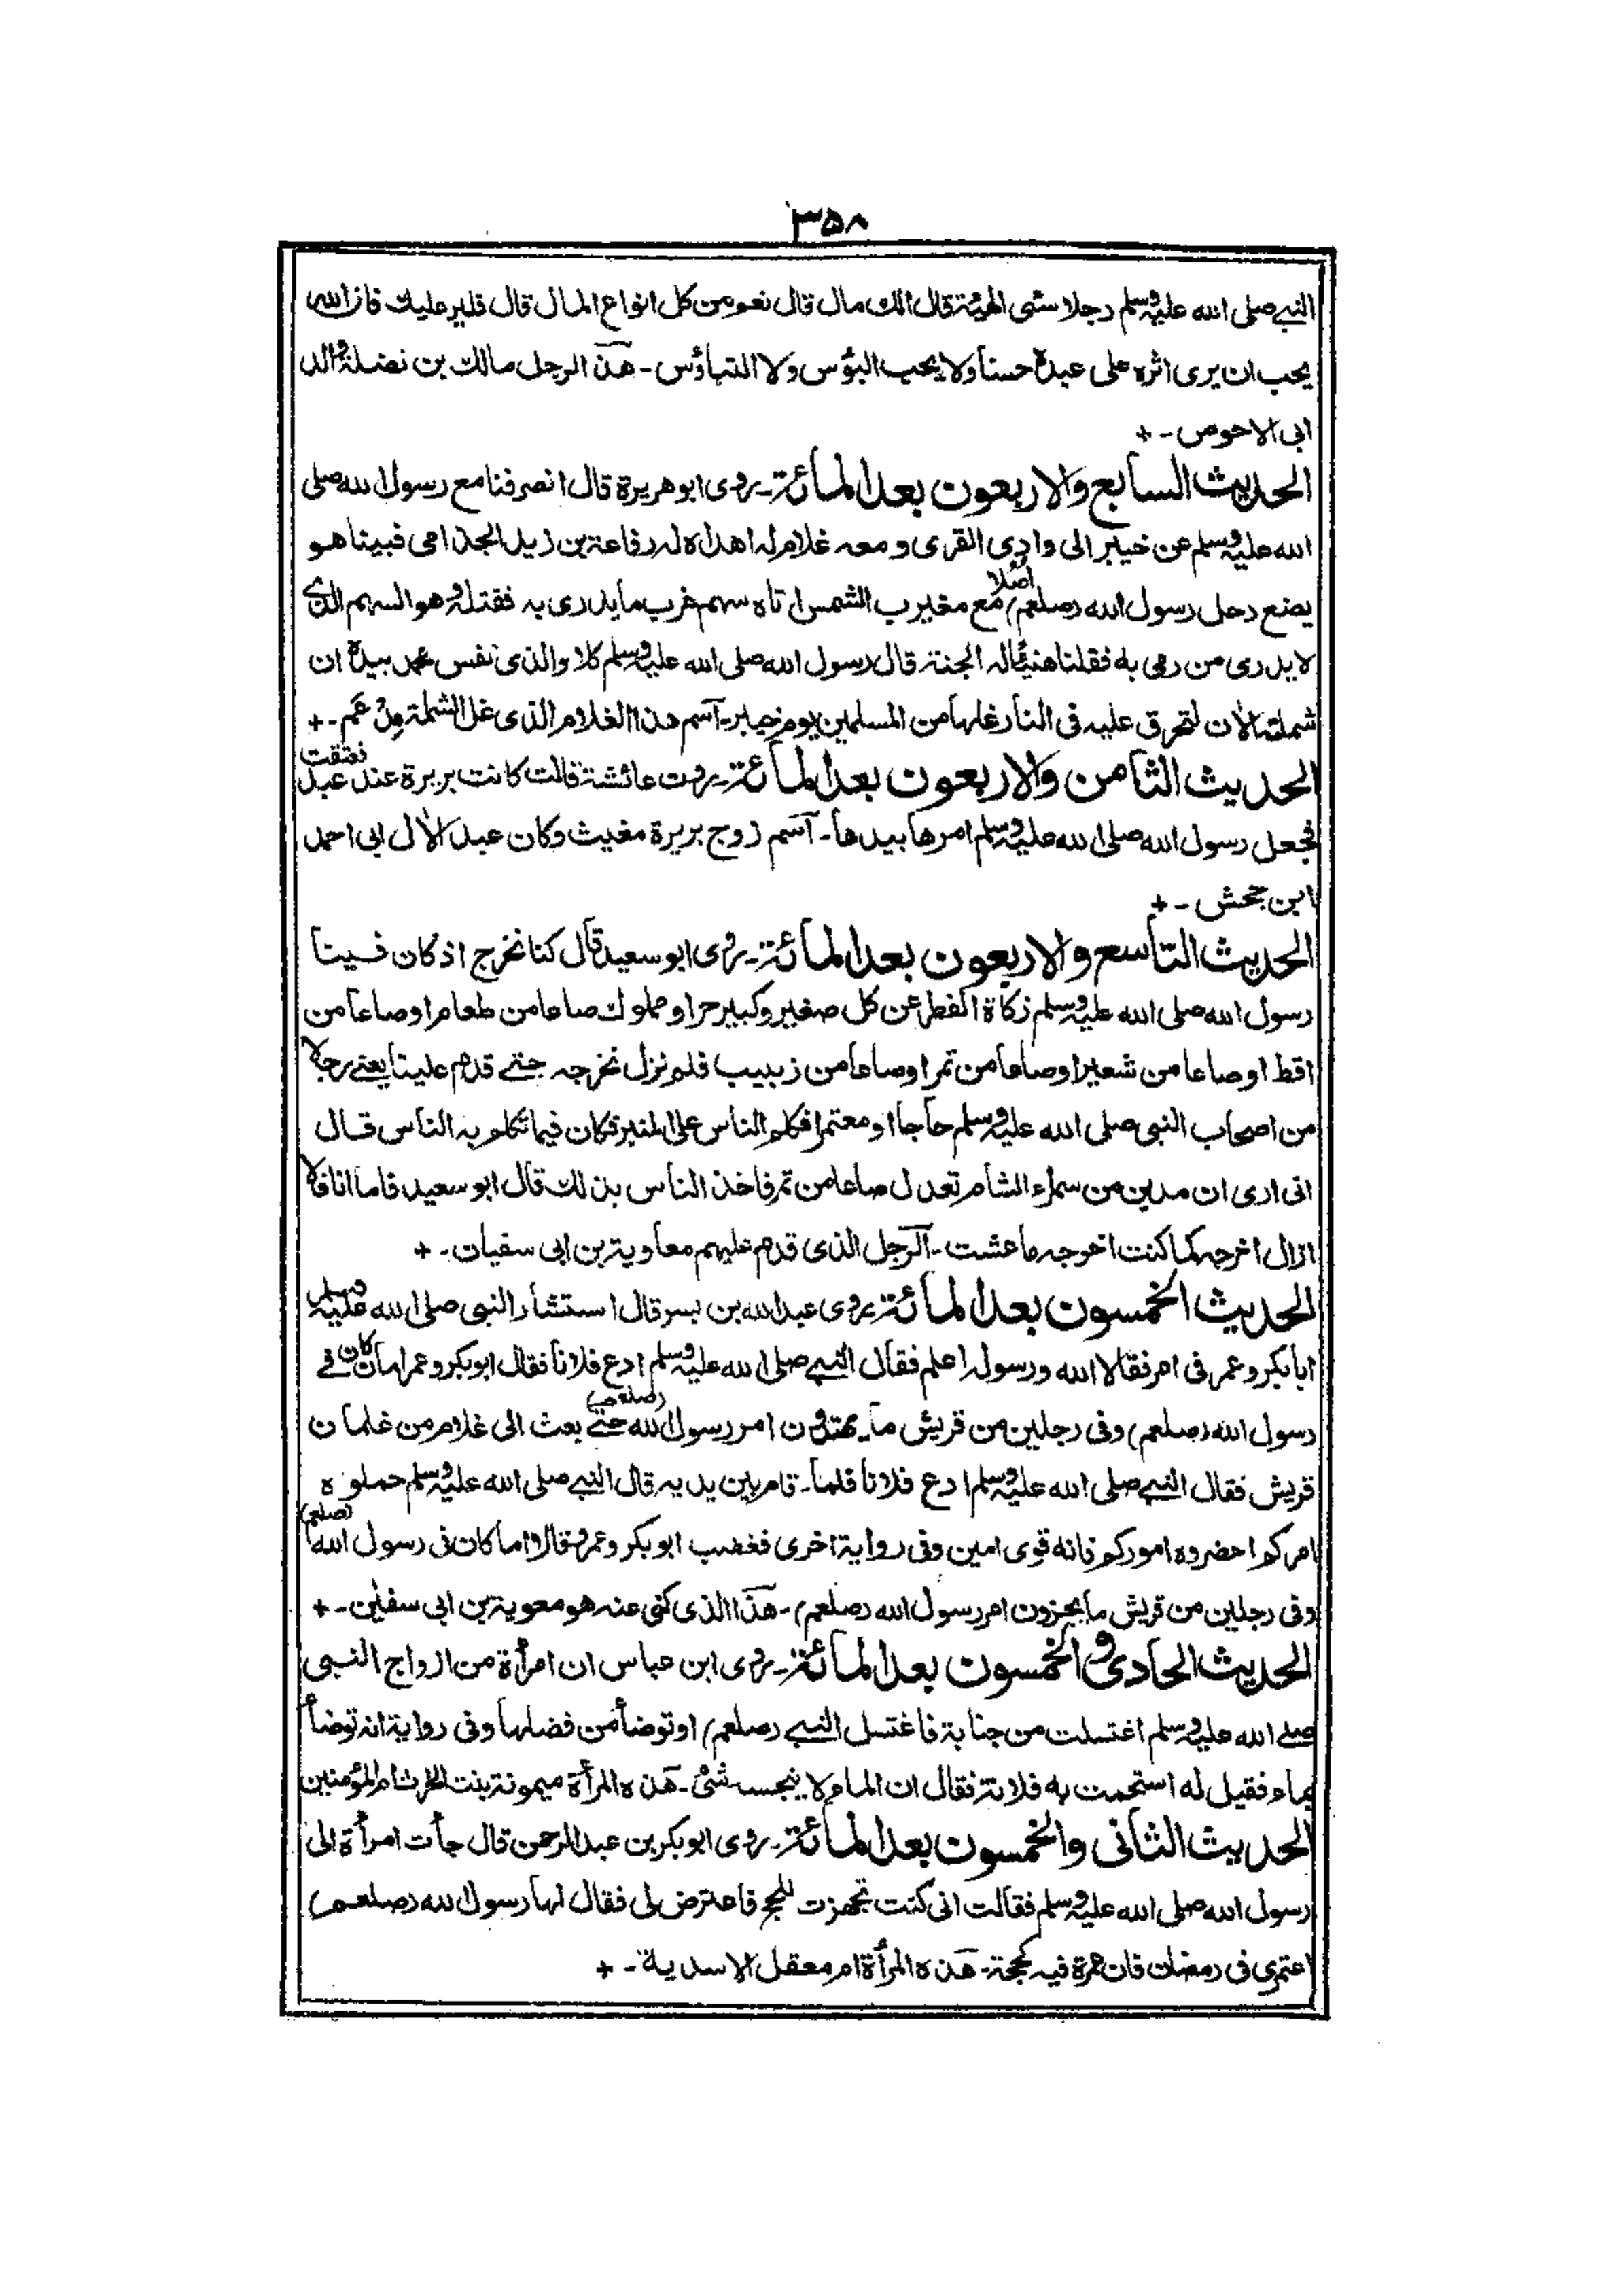 ۳۵۸
النبے صلی الله علیہ وسلم رجلا سئی الهیئة قال الك مال قال نعم من كل انواع المال قال فلیر علیك فان الله
یحب ان یری اثره علی عبده حسنا ولا یحب البؤس ولا التباؤس - هذا الرجل مالك بن نضلة والد
ابی الاحوص - +
الحدیث السابع والاربعون بعد المائة - روی ابو هریرة قال انصرفنا مع رسول الله صلی
الله علیہ وسلم عن خیبر الی وادی القری ومعه غلام له اهداه له رفاعة بن زید الجذامی فبینا هو
یضع رحل رسول الله (صلعم) اصلا مع مغیرب الشمس اتاه سهم غرب ما یدری به فقتله وهو السهم الذے
لا یدری من رمی به فقلنا هنیئا له الجنة قال رسول الله صلی الله علیہ وسلم كلا والذی نفس محمد بیده ان
شملته الآن لتحرق علیه فی النار غلها من المسلمین یوم خیبر - اسم هذا الغلام الذی غل الشملة مدعم - +
الحدیث الثامن والاربعون بعد المائة - روت عائشة قالت كانت بریرة عند عبد فعتقت
فجعل رسول الله صلی الله علیہ وسلم امرها بیدها - اسم زوج بریرة مغیث وكان عبد الآل ابی احمد
ابن جحش - +
الحدیث التاسع والاربعون بعد المائة - روی ابو سعید قال كنا نخرج اذ كان فینا
رسول الله صلی الله علیہ وسلم زكاة الفطر عن كل صغیر وكبیر حر او مملوك صاعا من طعام او صاعا من
اقط او صاعا من شعیر او صاعا من تمر او صاعا من زبیب فلم نزل نخرجه حتے قدم علینا یعنے رجلا
من اصحاب النبی صلی الله علیہ وسلم حاجا او معتمرا فكلم الناس علی المنبر فكان فیما تكلم به الناس قال
انی اری ان مدین من سمراء الشام تعدل صاعا من تمر فاخذ الناس بذلك قال ابو سعید فاما انا فلا
ازال اخرجه كما كنت اخرجه ما عشت - الرجل الذی قدم علیهم معاویة بن ابی سفیان - +
الحدیث الخمسون بعد المائة روی عبد الله بن بسر قال استشار النبی صلی الله علیہ وسلم
ابا بكر وعمر فی امر فقالا الله ورسوله اعلم فقال النبے صلی الله علیہ وسلم ادع فلانا فقال ابو بكر وعمر اما كان فے
رسول الله (صلعم) وفی رجلین من قریش ما امر رسول الله (صلعم) حتے بعث الی غلام من غلمان
قریش فقال النبے صلی الله علیہ وسلم ادع فلانا فلما - قام بین یدیه قال النبے صلی الله علیہ وسلم حملوه
امركم احضروه اموركم فانه قوی امین وفی روایة اخری فغضب ابو بكر وعمر وقالا اما كان فی رسول الله (صلعم)
وفی رجلین من قریش ما یجزون امر رسول الله (صلعم) - هذا الذی كنی عنه هو معویة بن ابی سفین - +
الحدیث الحادی والخمسون بعد المائة - روی ابن عباس ان امرأة من ازواج النبی
صلے الله علیہ وسلم اغتسلت من جنابة فاغتسل النبے (صلعم) او توضأ من فضلها وفی روایة انه توضأ
بماء فقیل له استحمت به فلانة فقال ان الماء لا ینجسه شئ - هذه المرأة میمونة بنت الحرث ام المؤمنین
الحدیث الثانی والخمسون بعد المائة - روی ابو بكر بن عبد الرحمن قال جأت امرأة الی
رسول الله صلی الله علیہ وسلم فقالت انی كنت تجهزت للحج فاعترض لی فقال لها رسول الله (صلعم)
اعتمری فی رمضان فان عمرة فیه كحجة - هذه المرأة ام معقل الاسدیة - +